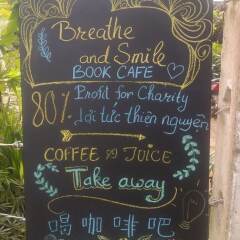 Breathe
and Smile
BOOK CAFE
80% Profit for Charity
Lợi tức thiện nguyện
COFFEE & JUICE
Take away
喝咖啡吧